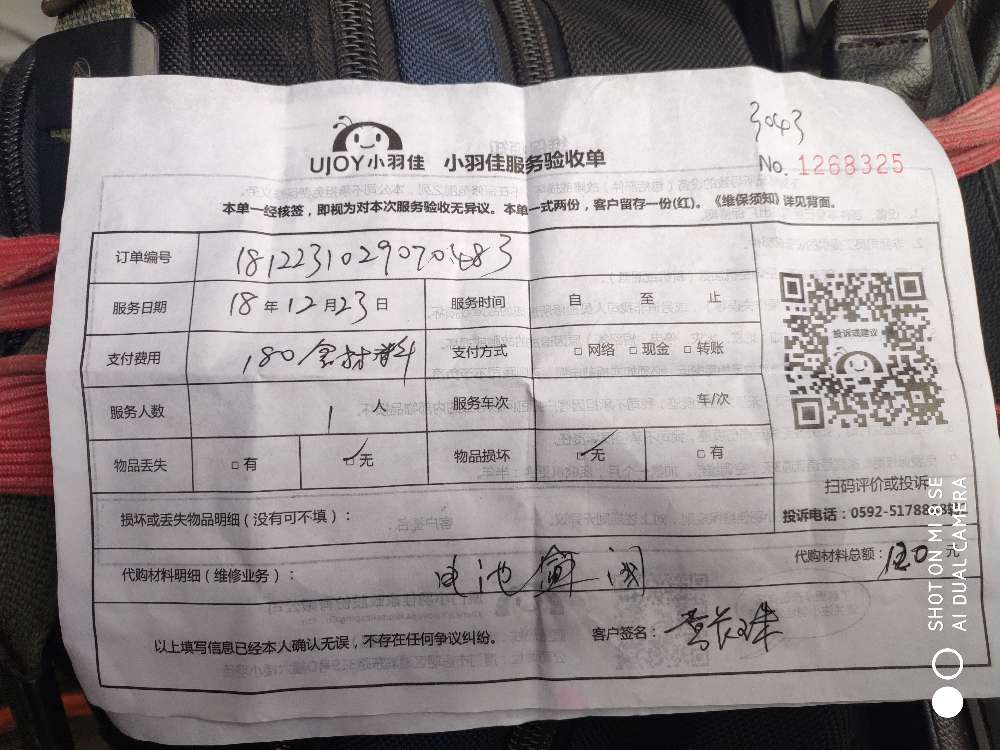 3043
UJOY小羽佳 小羽佳服务验收单
No. 1268325
本单一经核签，即视为对本次服务验收无异议。本单一式两份，客户留存一份(红)。《维保须知》详见背面。
订单编号
服务日期 18 年 12 月 23 日 服务时间 自 至 止
支付费用 180含材料 支付方式 □ 网络 □ 现金 □ 转账
服务人数 1 人 服务车次 车/次
物品丢失 □ 有 □ 无 物品损坏 □ 无 □ 有
投诉或建议
扫码评价或投诉
投诉电话：0592-5178868转
损坏或丢失物品明细（没有可不填）：
代购材料明细（维修业务）： 电池 阀 代购材料总额： 元
以上填写信息已经本人确认无误，不存在任何争议纠纷。 客户签名：
SHOT ON MI 8 SE
AI DUAL CAMERA